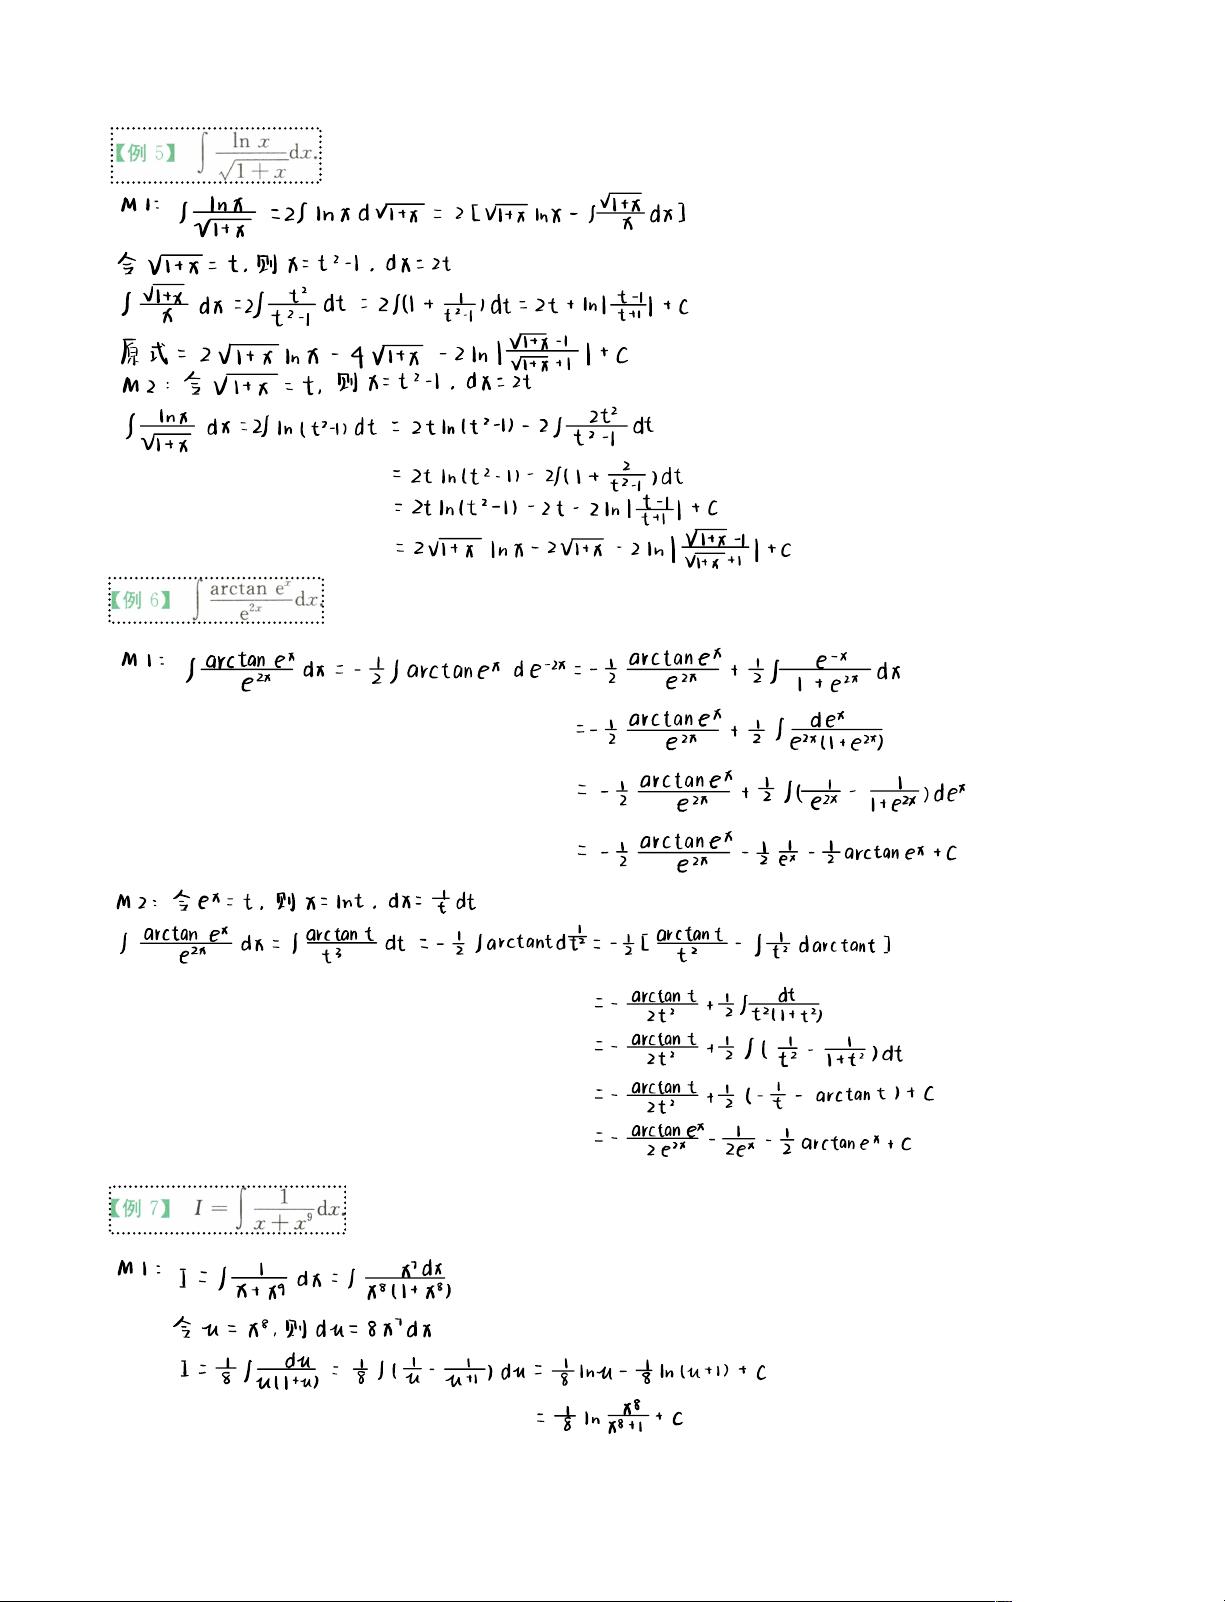 【例 5】 ∫ ln x / √(1+x) dx.
M1: ∫ lnx / √(1+x) = 2∫ lnx d√(1+x) = 2[√(1+x) lnx - ∫ √(1+x)/x dx]
令 √(1+x) = t, 则 x = t²-1, dx = 2t
∫ √(1+x)/x dx = 2∫ t²/(t²-1) dt = 2∫(1 + 1/(t²-1))dt = 2t + ln|(t-1)/(t+1)| + C
原式 = 2√(1+x) lnx - 4√(1+x) - 2ln|(√(1+x) -1)/(√(1+x) +1)| + C
M2: 令 √(1+x) = t, 则 x = t²-1, dx = 2t
∫ lnx/√(1+x) dx = 2∫ ln(t²-1) dt = 2t ln(t²-1) - 2∫ 2t²/(t²-1) dt
= 2t ln(t²-1) - 2∫(1 + 2/(t²-1))dt
= 2t ln(t²-1) - 2t - 2ln|(t-1)/(t+1)| + C
= 2√(1+x) lnx - 2√(1+x) - 2ln|(√(1+x) -1)/(√(1+x) +1)| + C
【例 6】 ∫ arctan eˣ / e²ˣ dx.
M1: ∫ arctan eˣ / e²ˣ dx = -1/2 ∫ arctan eˣ d e⁻²ˣ = -1/2 arctan eˣ / e²ˣ + 1/2 ∫ e⁻ˣ/(1+e²ˣ) dx
= -1/2 arctan eˣ / e²ˣ + 1/2 ∫ deˣ/(e²ˣ(1+e²ˣ))
= -1/2 arctan eˣ / e²ˣ + 1/2 ∫(1/e²ˣ - 1/(1+e²ˣ))deˣ
= -1/2 arctan eˣ / e²ˣ - 1/2 1/eˣ - 1/2 arctan eˣ + C
M2: 令 eˣ = t, 则 x = lnt, dx = 1/t dt
∫ arctan eˣ / e²ˣ dx = ∫ arctan t / t³ dt = -1/2 ∫arctant d 1/t² = -1/2 [arctan t / t² - ∫ 1/t² darctant]
= - arctan t / 2t² + 1/2 ∫ dt/(t²(1+t²))
= - arctan t / 2t² + 1/2 ∫(1/t² - 1/(1+t²))dt
= - arctan t / 2t² + 1/2 (-1/t - arctan t) + C
= - arctan eˣ / 2e²ˣ - 1/2eˣ - 1/2 arctan eˣ + C
【例 7】 I = ∫ 1/(x+x⁹) dx.
M1: I = ∫ 1/(x+x⁹) dx = ∫ x⁷dx/(x⁸(1+x⁸))
令 u = x⁸, 则 du = 8x⁷dx
I = 1/8 ∫ du/(u(1+u)) = 1/8 ∫(1/u - 1/(u+1)) du = 1/8 lnu - 1/8 ln(u+1) + C
= 1/8 ln x⁸/(x⁸+1) + C